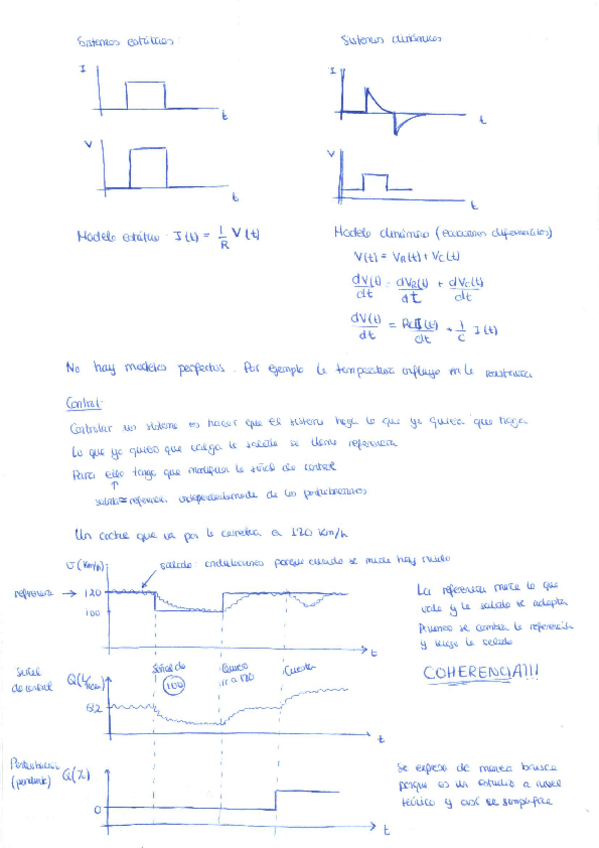 Sistemas estáticos:
Sistemas dinámicos
I
t
V
t
I
t
V
t
Modelo estático: I(t) = 1/R V(t)
Modelo dinámico (ecuaciones diferenciales)
V(t) = VR(t) + Vc(t)
dV(t)/dt = dVR(t)/dt + dVc(t)/dt
dV(t)/dt = R dI(t)/dt + 1/C I(t)
No hay modelos perfectos. Por ejemplo la temperatura influye en la resistencia
Control:
Controlar un sistema es hacer que el sistema haga lo que yo quiera que haga
Lo que yo quiero que salga la salida se llama referencia
Para ello tengo que modificar la señal de control
salida = referencia independientemente de las perturbaciones
Un coche que va por la carretera a 120 km/h
v (km/h)
salida: ondulaciones porque cuando se mide hay ruido
referencia → 120
100
t
La referencia marca lo que
vale y la salida se adapta
Primero se cambia la referencia
y luego la salida
COHERENCIA!!!
Señal
de control
Q(
Señal de
100
Quiero
ir a 120
Cuesta
t
Perturbación
(pendiente)
(%)
0
t
Se expresa de manera brusca
porque es un estudio a nivel
teórico y así se simplifica